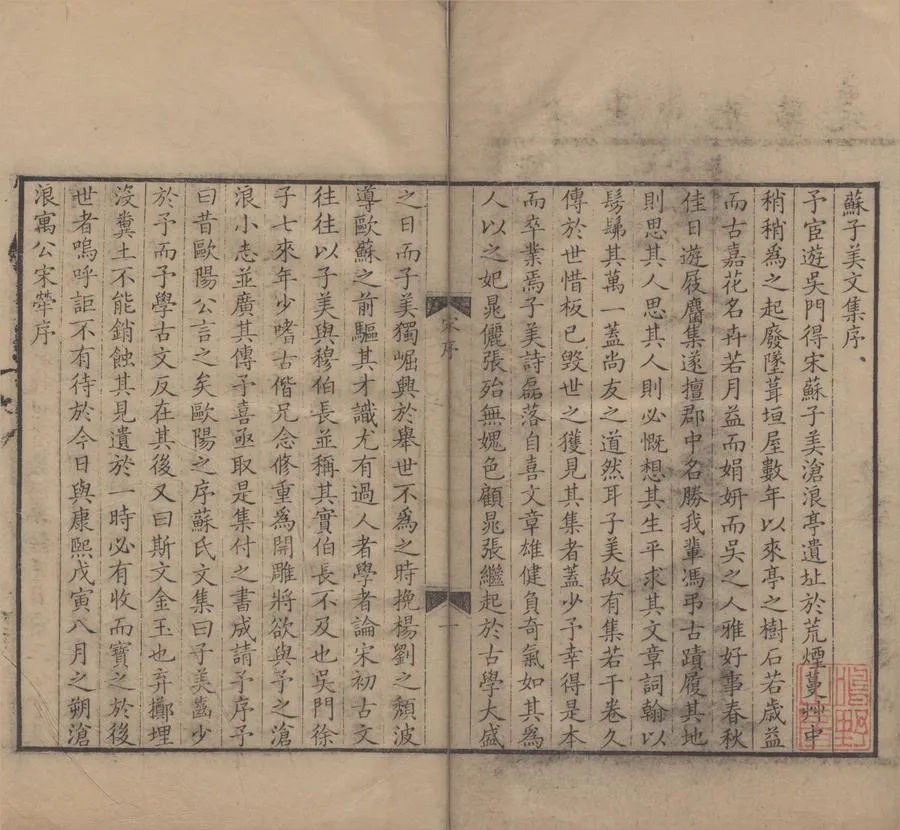 蘇子美文集序
予宦遊吳門得宋蘇子美滄浪亭遺址於荒煙蔓艸中
稍稍為之起廢墜葺垣屋數年以來亭之樹石若歲益
而古嘉花名卉若月益而娟妍而吳之人雅好事春秋
佳日遊屐麕集遂擅郡中名勝我輩馮弔古蹟履其地
則思其人思其人則必慨想其生平求其文章詞翰以
髣髴其萬一蓋尚友之道然耳子美故有集若干卷久
傳於世惜板已毀世之獲見其集者蓋少予幸得是本
而卒業焉子美詩磊落自喜文章雄健負奇氣如其為
人以之妃晁儷張殆無媿色顧晁張繼起於古學大盛
宋序
一
之日而子美獨崛興於舉世不為之時挽楊劉之頹波
導歐蘇之前驅其才識尤有過人者學者論宋初古文
往往以子美與穆伯長並稱其實伯長不及也吳門徐
子七來年少嗜古偕兄念修重為開雕將欲與予之滄
浪小志並廣其傳予喜亟取是集付之書成請予序予
曰昔歐陽公言之矣歐陽之序蘇氏文集曰子美齒少
於予而予學古文反在其後又曰斯文金玉也弃擲埋
沒糞土不能銷蝕其見遺於一時必有收而寶之於後
世者嗚呼詎不有待於今日與康熙戊寅八月之朔滄
浪寓公宋犖序